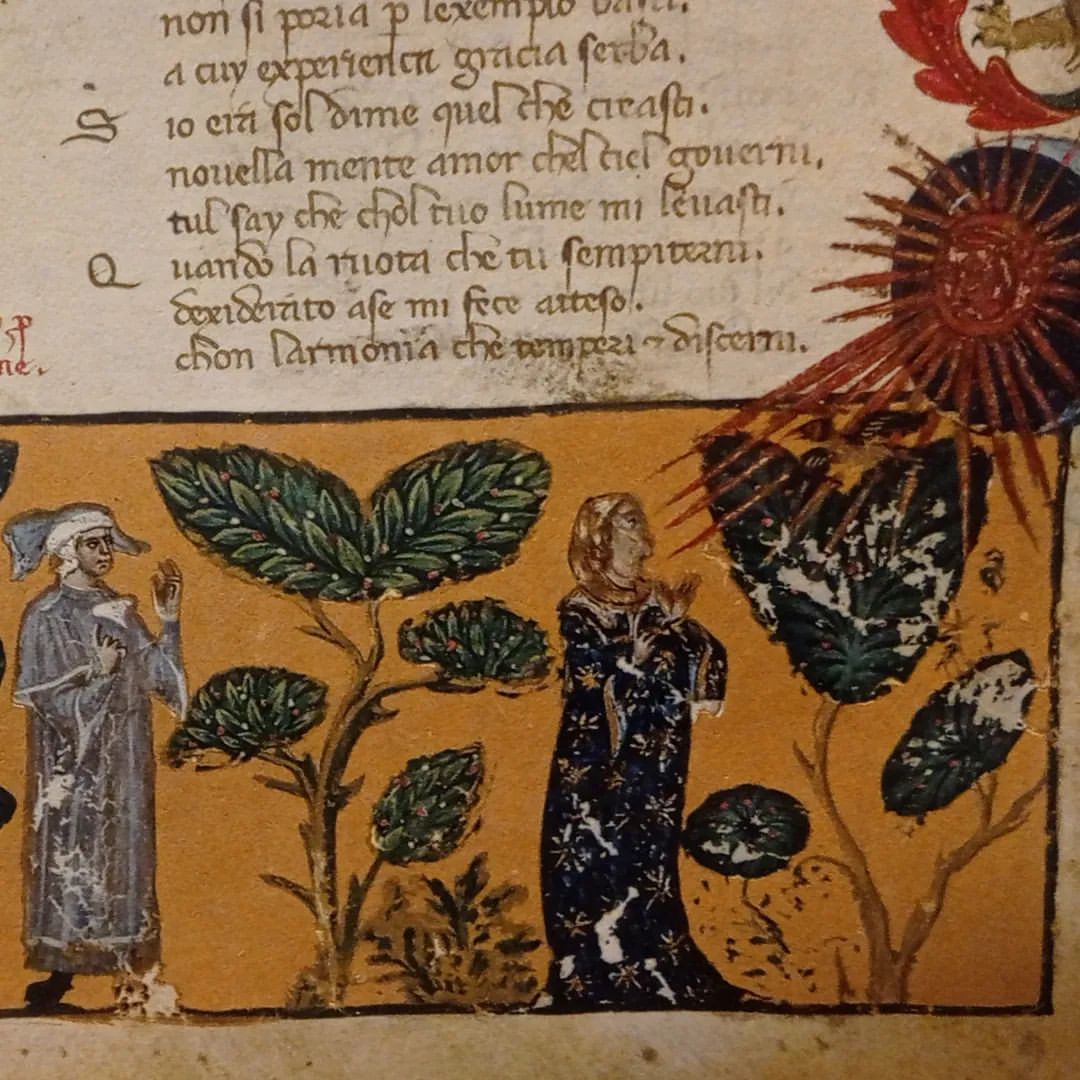 non si poria p lexemplo basti.
a cuy experientia gracia serba.
S io era sol dime quel che creasti.
nouella mente amor chel ciel gouerni.
tul say che chol tuo lume mi leuasti.
Q uando la ruota che tu sempiterni.
dexiderato ase mi fece atteso.
chon larmonia che temperi ⁊ discerni.
p
ne.